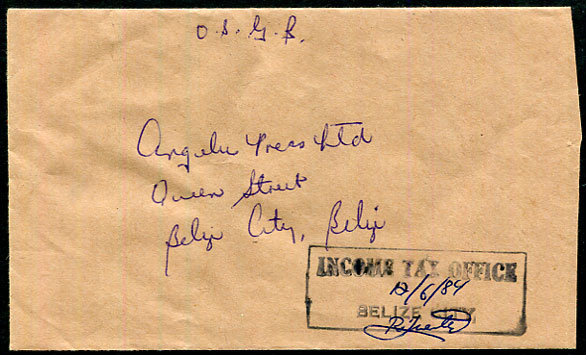 O. S. G. B.
Angelu Press Ltd
Queen Street
Belize City, Belize
INCOME TAX OFFICE
12/6/84
BELIZE CITY